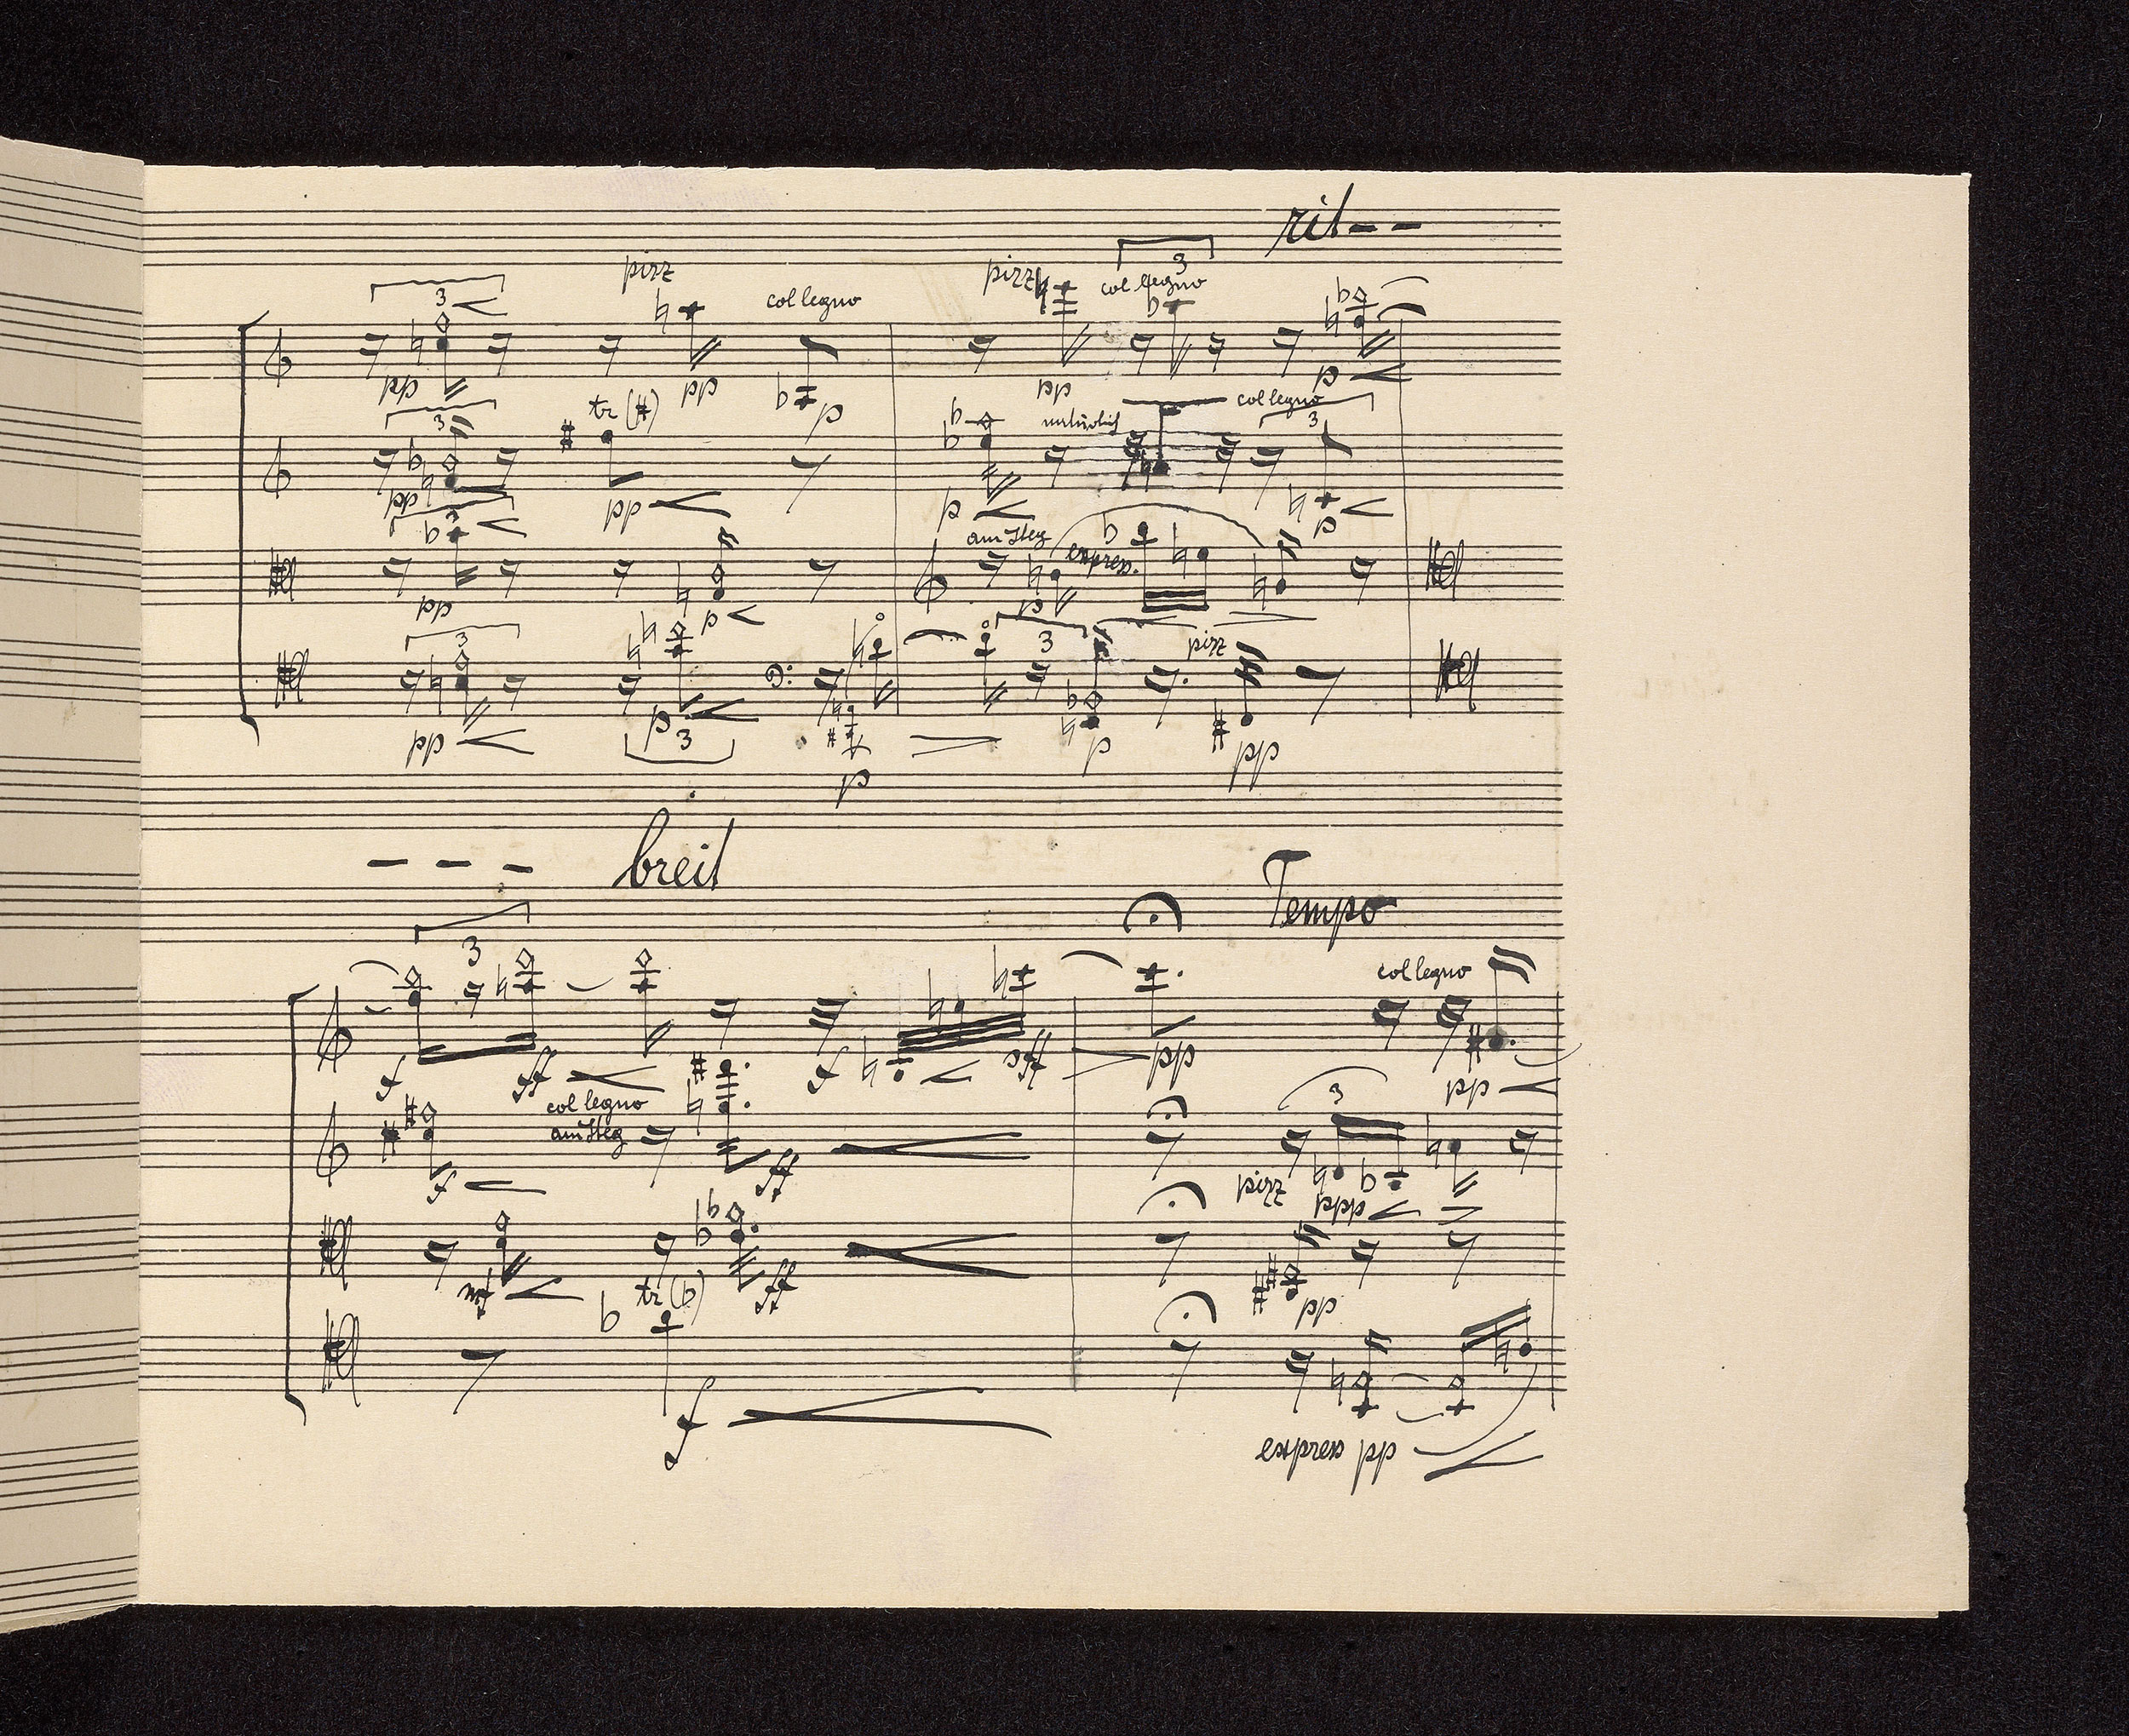 rit - -
pizz
pizz
3
3
col legno
col legno
pp
pp
p
pp
p
3
tr (#)
natürlich
col legno
3
pp
pp
p
p
3
am Steg
express.
pp
p
p
3
3
pizz
pp
p
3
p
p
pp
- - - breit
Tempo
3
col legno
f
ff
f
sff
pp
pp
col legno
am Steg
3
f
ff
ppp
pizz
mf
ff
pp
tr (b)
f
express pp